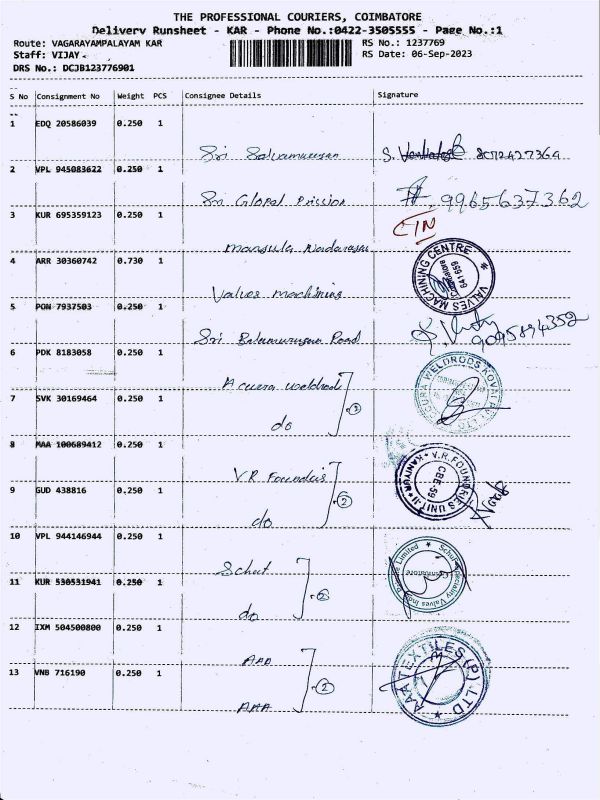 THE PROFESSIONAL COURIERS, COIMBATORE
Delivery Runsheet - KAR - Phone No.:0422-3505555 - Page No.:1
Route: VAGARAYAMPALAYAM KAR
RS No.: 1237769
Staff: VIJAY
RS Date: 06-Sep-2023
DRS No.: DCJB123776901
S No Consignment No Weight PCS Consignee Details Signature
1 EDQ 20586039 0.250 1
Sri 8072427364
2 VPL 945083622 0.250 1
Sri Glopal 9965637362
3 KUR 695359123 0.250 1
CTN
4 ARR 30360742 0.730 1
Valves machining
VALVES MACHINING CENTRE
641 659
5 PON 7937503 0.250 1
Sri Balamurugan Road
9095894352
6 PDK 8183058 0.250 1
Accura weldrods
ACCURA WELDRODS KOVAI PVT LTD
7 SVK 30169464 0.250 1
do 2
8 MAA 100689412 0.250 1
V.R Foundris
V.R. FOUNDRIES UNIT-II
KANIYUR
CBE-59
9 GUD 438816 0.250 1
do 2
10 VPL 944146944 0.250 1
Schut
11 KUR 530531941 0.250 1
do 2
12 IXM 504500800 0.250 1
AAA TEXTILES (P) LTD
13 VNB 716190 0.250 1
AAA 2